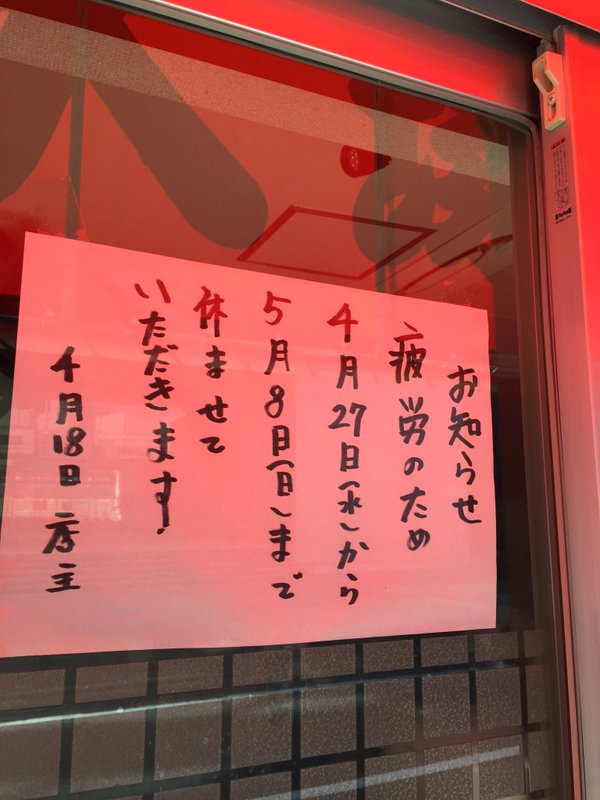 お知らせ
疲労のため
4月27日(水)から
5月8日(日)まで
休ませて
いただきます!
4月18日 店主